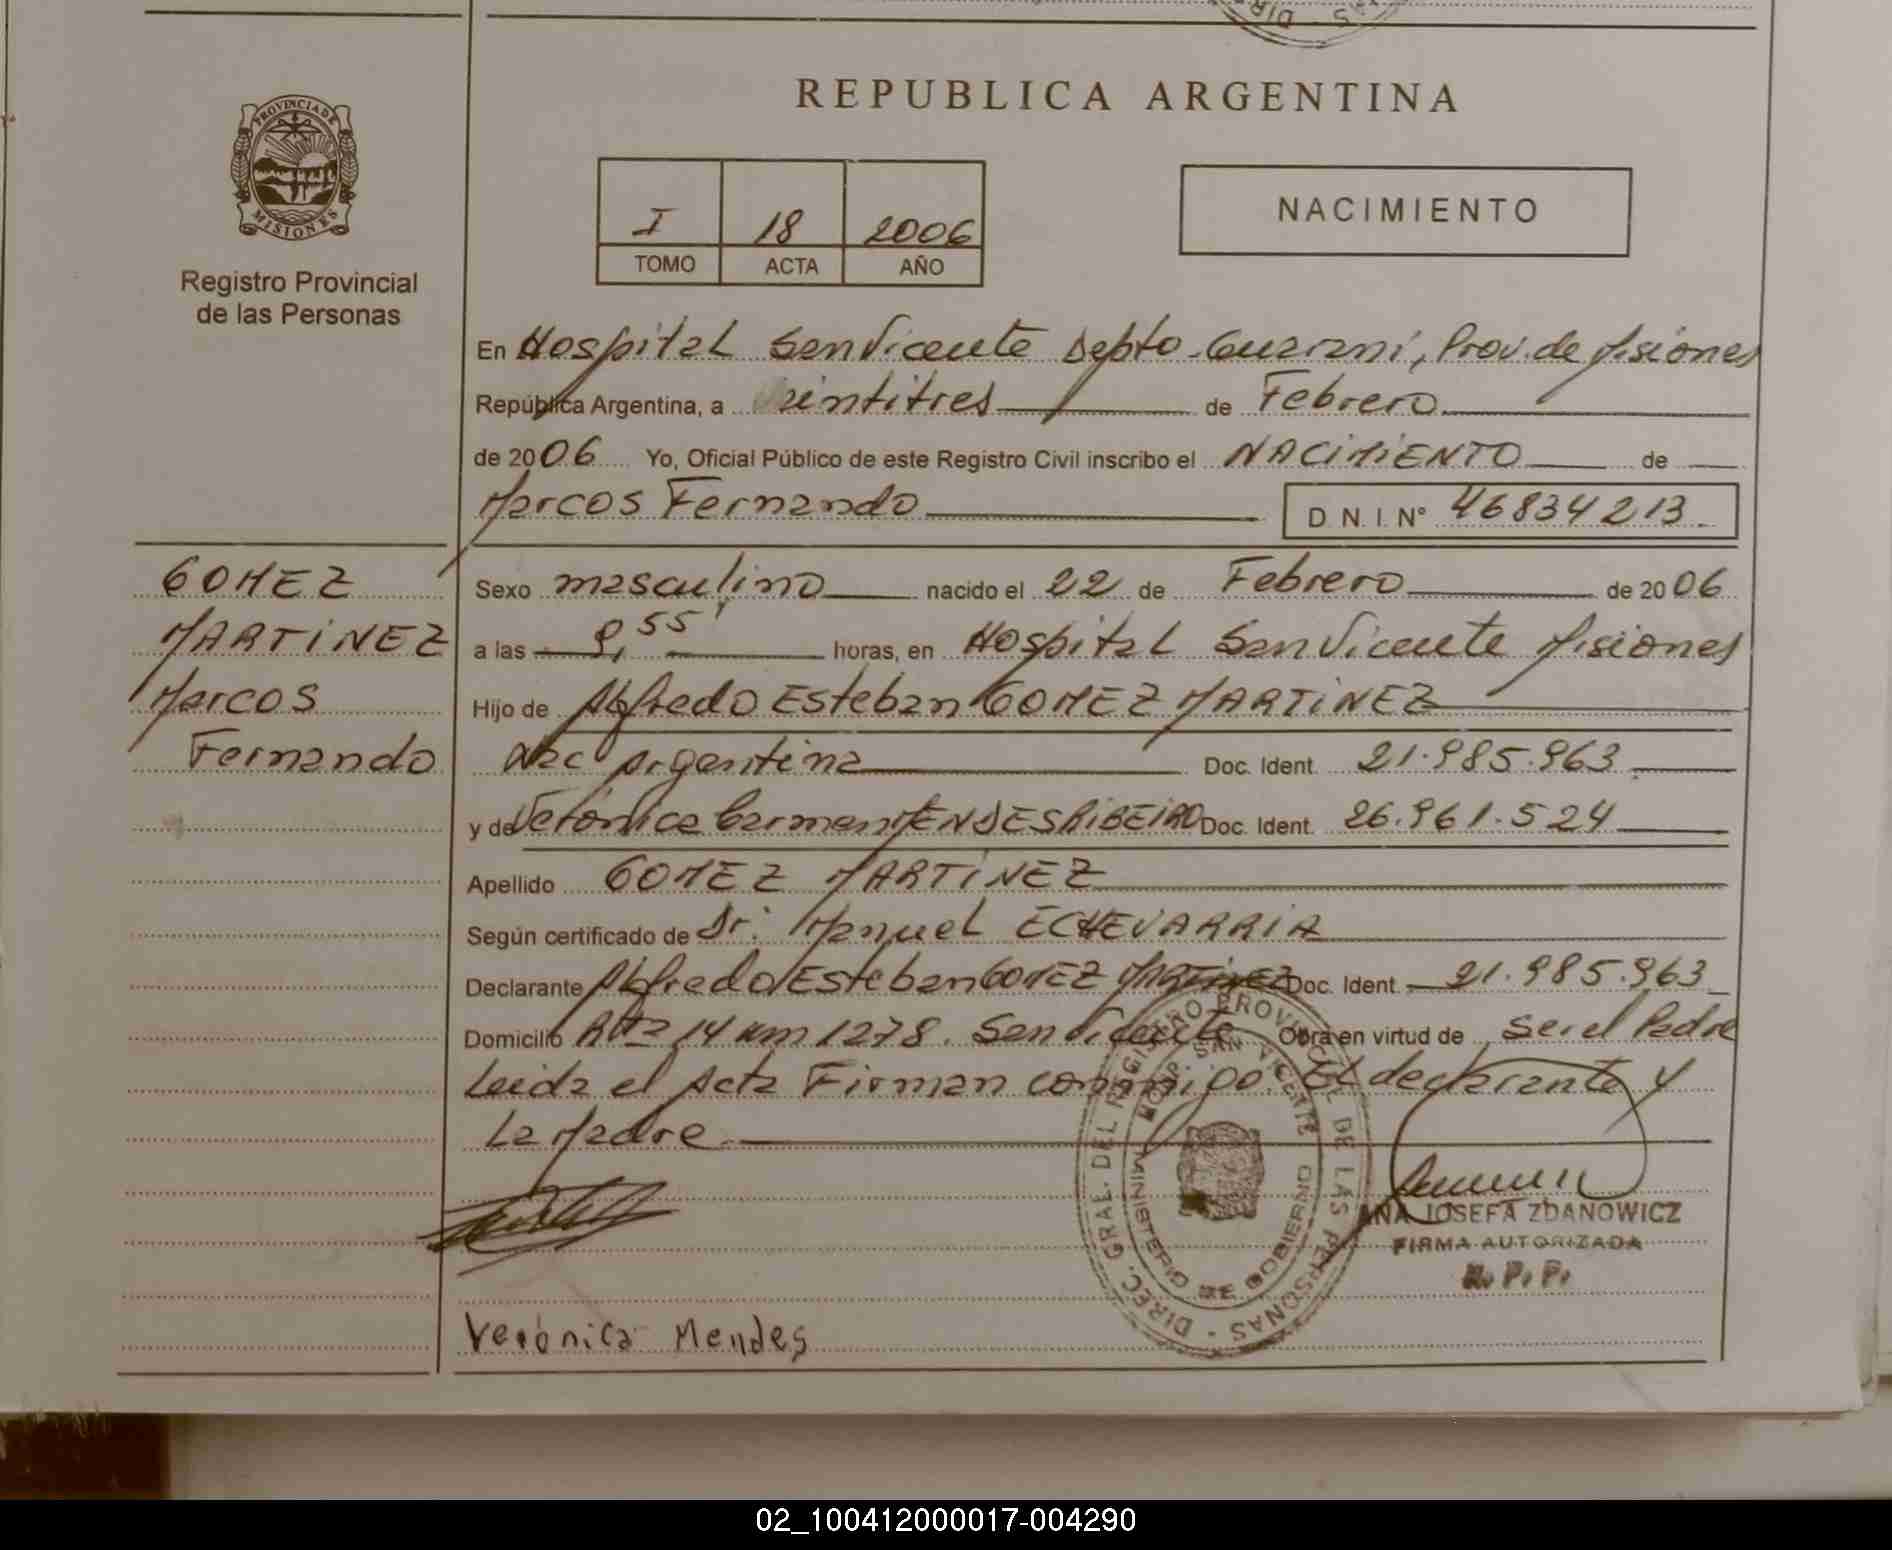 DIR
REPUBLICA ARGENTINA
PROVINCIA DE
MISIONES
Registro Provincial
de las Personas
I 18 2006
TOMO ACTA AÑO
NACIMIENTO
En Hospital San Vicente Depto. Guarani, Prov. de Misiones
República Argentina, a veintitres de Febrero
de 2006 Yo, Oficial Público de este Registro Civil inscribo el NACIMIENTO de
Marcos Fernando D.N.I. N° 46834213
GOMEZ
MARTINEZ
Marcos
Fernando
Sexo masculino nacido el 22 de Febrero de 2006
a las 9,55' horas, en Hospital San Vicente Misiones
Hijo de Alfredo Esteban GOMEZ MARTINEZ
Nac Argentina Doc. Ident. 21.985.963
y de Verónica Carmen MENDES RIBEIRO Doc. Ident. 26.961.524
Apellido GOMEZ MARTINEZ
Según certificado de Dr. Manuel ECHEVARRIA
Declarante Alfredo Esteban GOMEZ MARTINEZ Doc. Ident. 21.985.963
Domicilio Rta 14 km 1278. San Vicente Obra en virtud de ser el Padre
Leida el Acta Firman conmigo. El declarante y
La Madre
DIREC. GRAL. DEL REGISTRO PROVINCIAL DE LAS PERSONAS
HOSP. SAN VICENTE
MINISTERIO DE GOBIERNO
ANA JOSEFA ZDANOWICZ
FIRMA AUTORIZADA
R.P.P.
Verónica Mendes
02_100412000017-004290